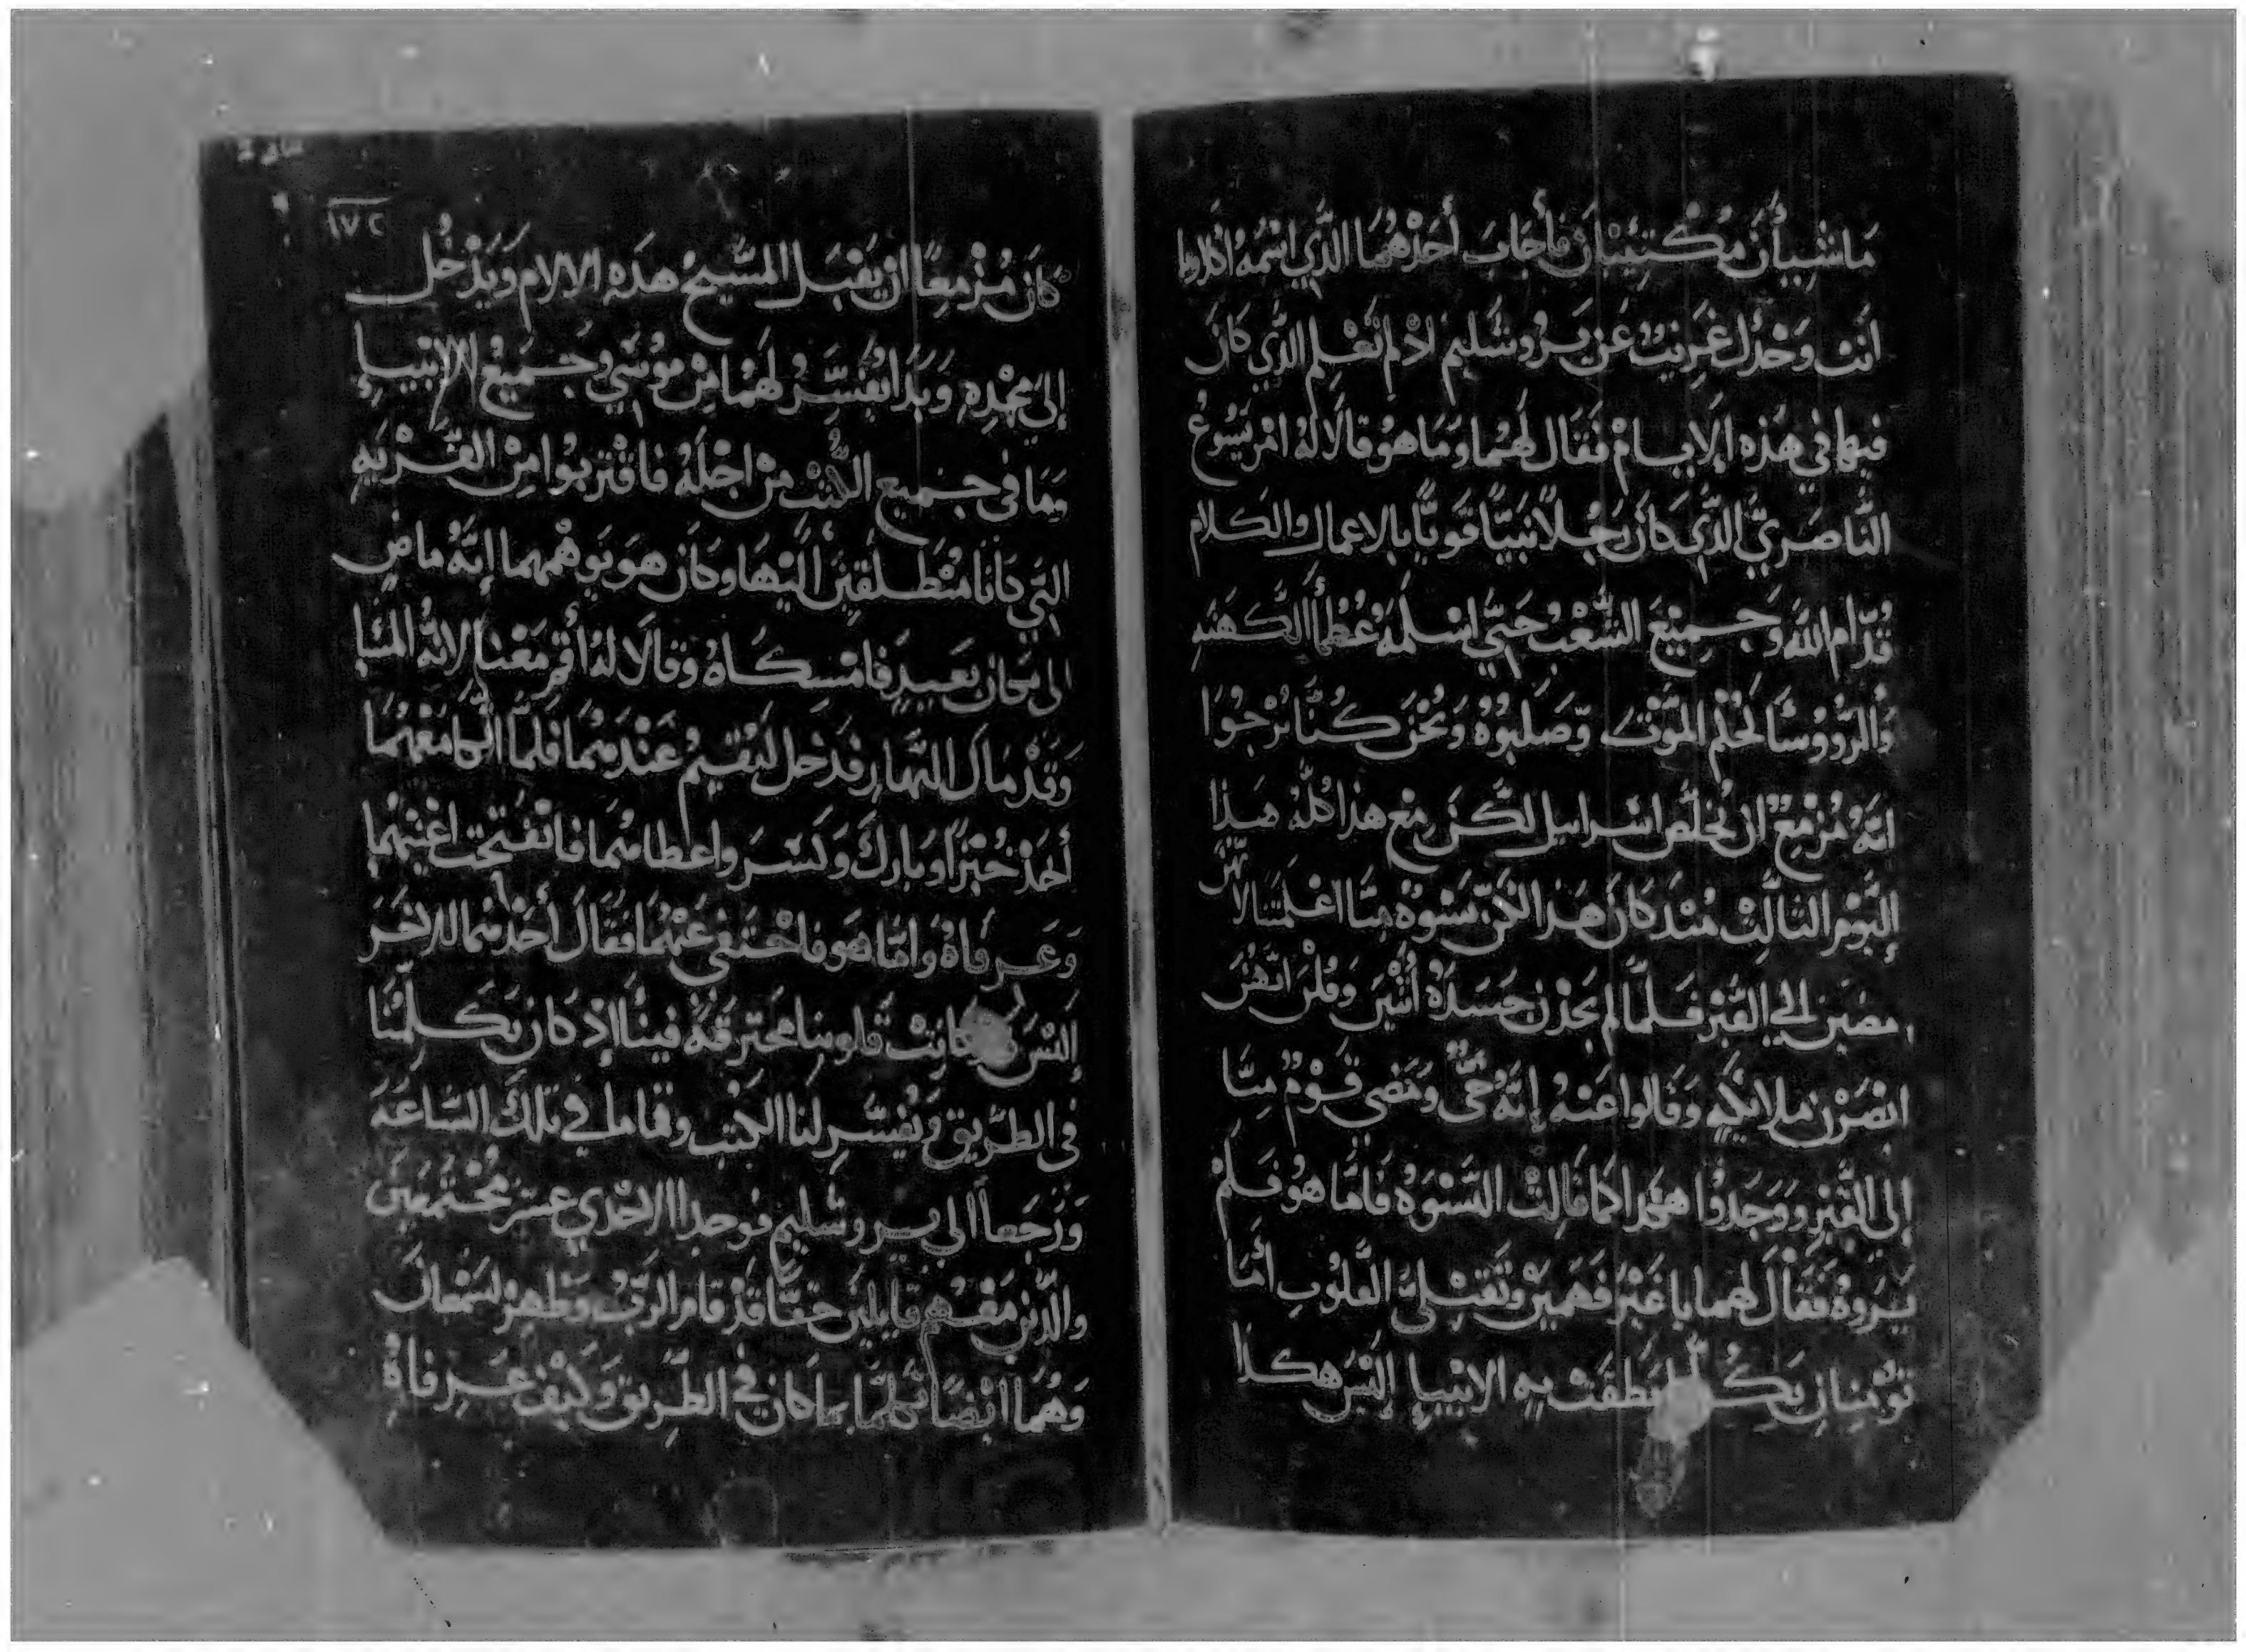 مَاشِيأَنِ مُكْتَئِبَانِ فأَجَابَ أَحَدُهُمَا الَّذِي اسْمُهُ اكلاوبا
اَنتَ وَحْدَكَ غَرِيبٌ عَن يَرُوشَليم اذ لم تَعْلم الَّذي كَانَ
فيها في هَذه الايام فَقَال لَهُما وَمَا هُو قالاَ لهُ امر يَسُوعُ
النَّاصَريِّ الذَّي كَانَ رَجُلاً نَبيًّا قَويًّا بالاعمال والكلام
قُدّام الله وَجَمِيعَ الشَّعْب حَتّي اسْلمَهُ عُظمأ الكَهَنه
وَالرُّووُسَا لحُكم المَوْت وَصَلبُوهُ وَنحْنُ كُنَّا نَرْجُوا
انَّهُ مُزْمِعٌ ان يُخلّص اسراييل لكَن مع هذا كُلهُ هَذا
اليَوْم الثالِث مُنْذ كَانَ هَذا لكنّ نِسْوَةٌ مِنَّا اعْلمَننَا لانّهُنّ
مضَين إلي القَبْر فَلمَّا لم يَجدْن جَسَدَهُ أَتَيْنَ وَقُلْنَ انَّهُنَّ
ابْصَرْن ملايكه وَقَالوا عَنهُ إنَّهُ حَيٌّ وَمَضي قَوْمٌ مِنَّا
إلى القَبْر وَوَجَدُوا هكَذا كَما قَالت النّسْوَةُ فَامَّا هُو فَلمْ
يَرَوهُ فَقَالَ لهما يا غَيْرَ فَهَمِينَ وَثَقيْلَي القُلُوبِ امَا
تؤمنان بكُل ما نَطَقتْ بهِ الانْبيا إلَيْسَ هكذا
١٧٢
كَانَ مُزْمِعًا ان يَقبَل المَسيحُ هذه الالام وَيَدْخُل
إلى مَجْدِهِ وَبَدَا يُفَسّرُ لَهُمَا مِنْ مُوسَي وجَميعُ الانبيا
وَمَا في جميع الكُتب مِنْ اجْلهُ فاقْتَربوا مِن القَرْيه
التّي كانَا مُنْطَلقَيْن الَيْهَا وَكَان هوَ يوهْمهما إنّهُ ماضٍ
الى مَكان بَعيدٍ فامْسكَاهُ وَقالاَ لهُ أقم مَعْنا لانّهُ المَسَا
وَقَدْ مَالَ النَّهار فدَخل ليُقيمُ عَنْدهُما فَلمّا اتّكا مَعْهُمَا
أخَذ خُبْزًا وَبارك وَكَسَّر واعطاهُما فانفَتحت اعْينهُما
وَعَرفَاهُ وَامّا هو فاخْتَفي عَنْهُمَا فقَالَ أحَدُهُما للاخَر
إلَيْسَ قد كانَتْ قلوبنا محترقَةً فينَا إذ كان يَكلّمُنَا
في الطَّريق ويُفسّر لنا الكُتب وقاما في تلكَ السّاعَة
وَرَجَعاً الى يروشَليم فوجدا الاحْدي عشر مُجْتَمعين
والذّين مَعْهُم قايلين حقًّا قَدْ قام الرَّبُّ وَظهر لسَمعان
وَهُمَا ايْضًا تكلّمَا بما كان في الطّريق وَكيف عَرفاهُ